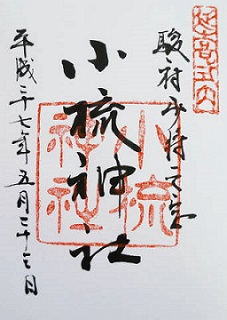 延喜式内
駿府少将之宮
小梳神社
小梳神社
平成二十七年五月二十三日